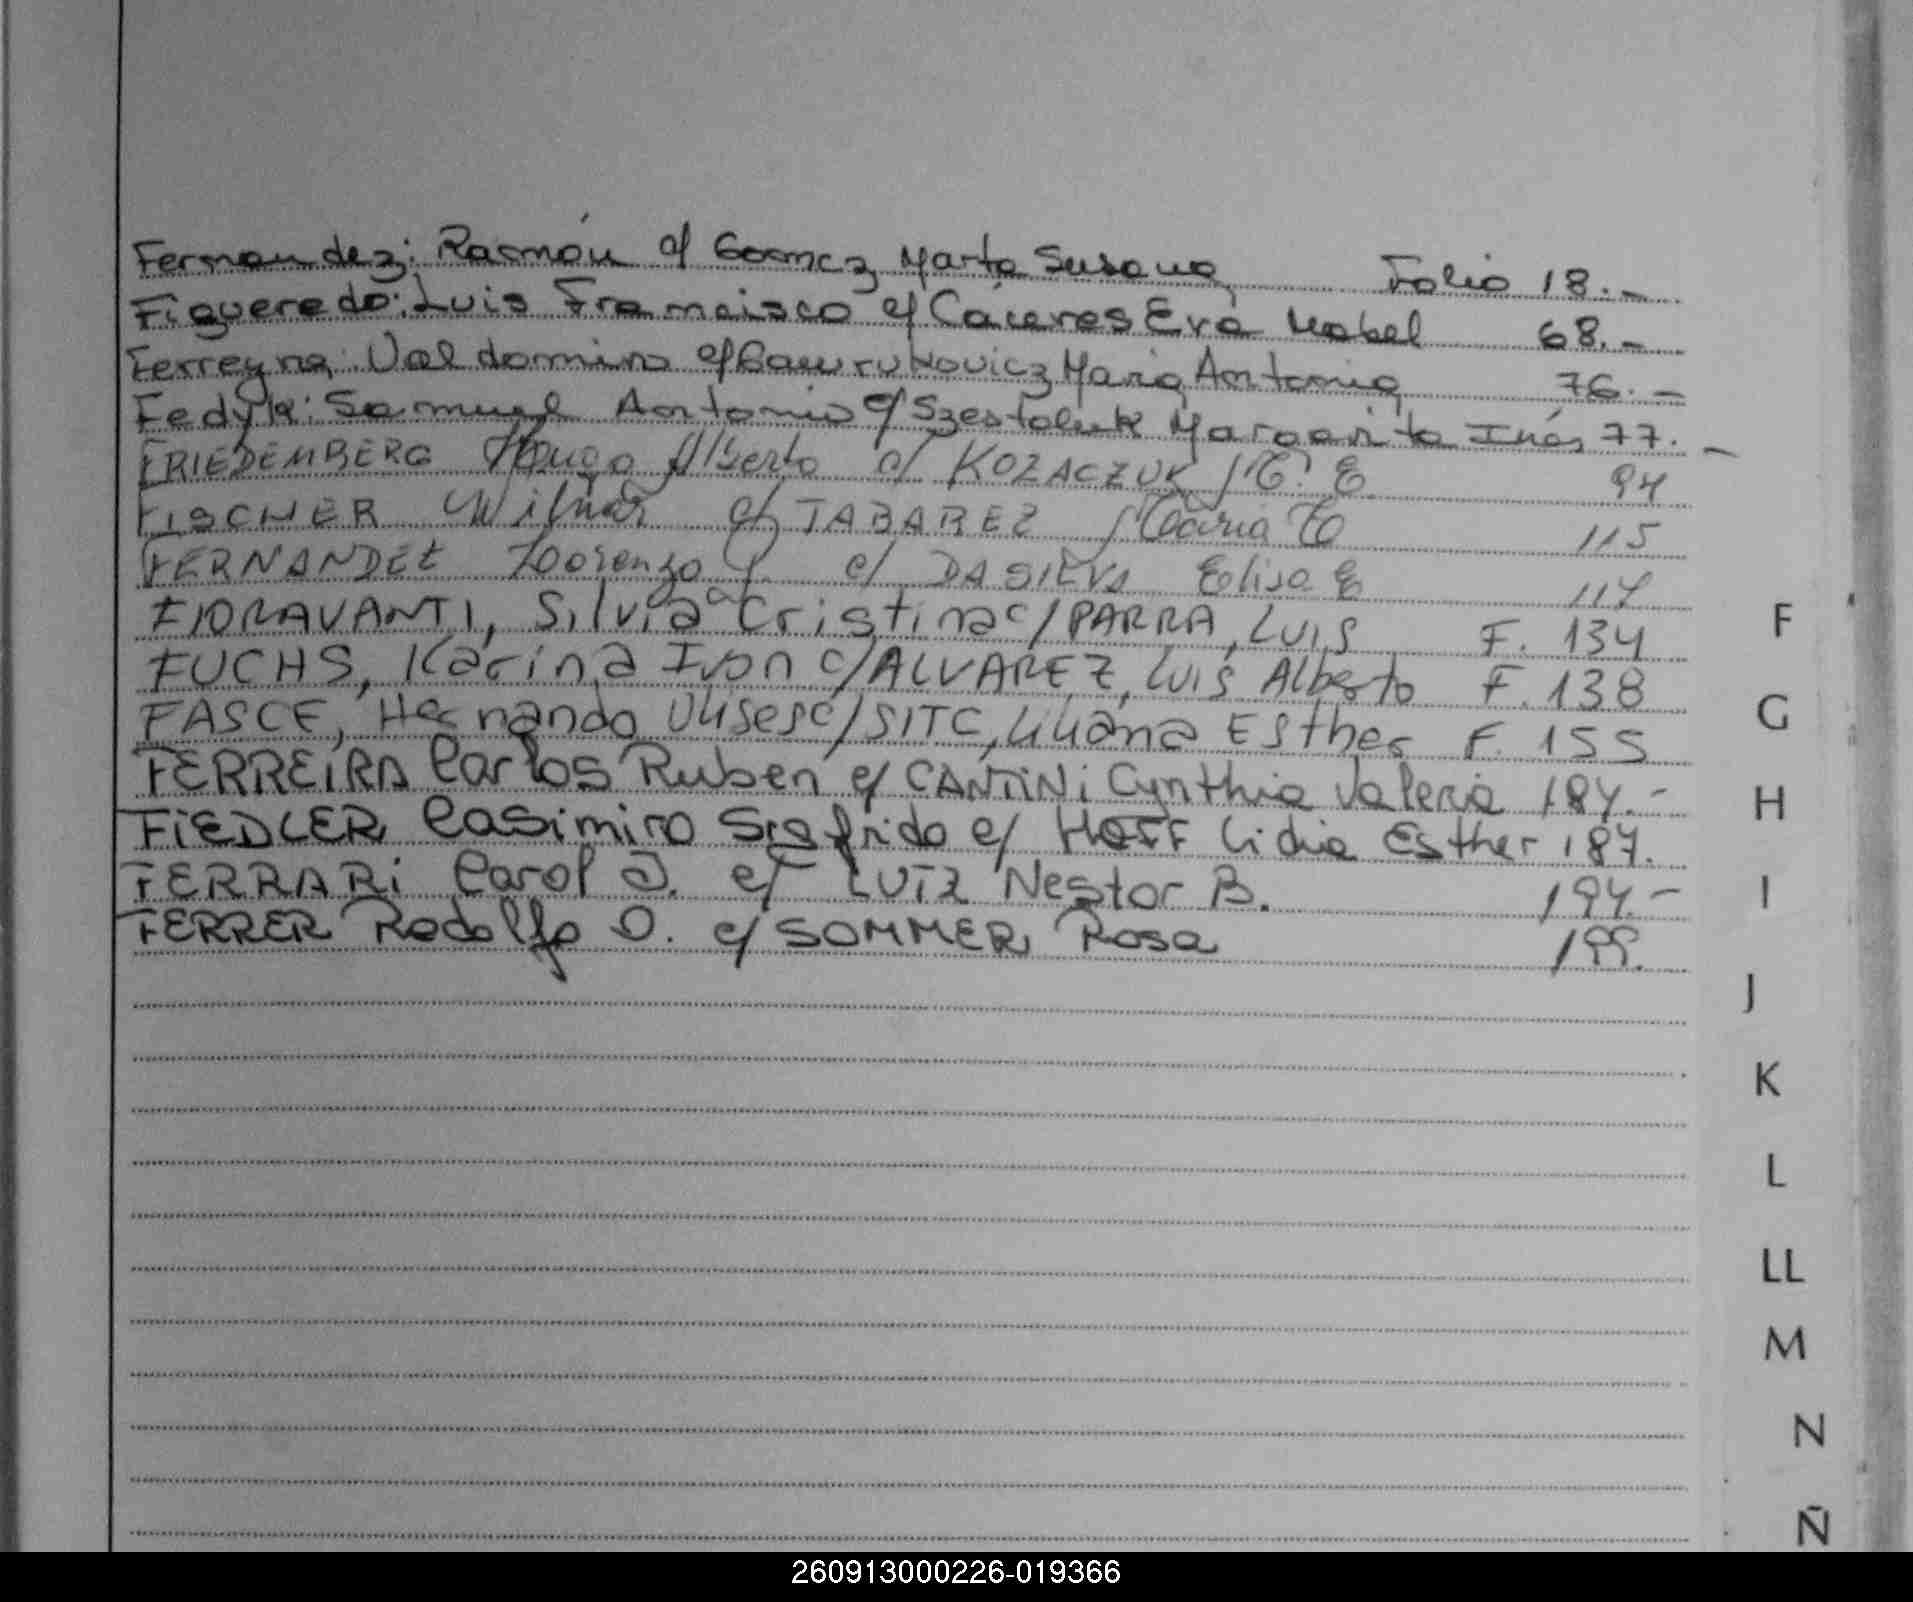 Fernandez: Ramón c/ Gomez Marta Susana Folio 18.-
Figueredo: Luis Francisco c/ Cáceres Eva Mabel 68.-
Ferreyra: Valdomiro c/ Gawrukovicz Maria Antonia 76.-
Fedyk: Samuel Antonio c/ Szestaluk Margarita Inés 77.-
FRIEDEMBERG Hugo Alberto c/ KOZACZUK E. 94
FISCHER Wilmar c/ TABAREZ Maria 115
FERNANDEZ Lorenzo c/ DA SILVA Elisa E 117
FIORAVANTI, Silvia Cristina c/ PARRA, Luis F. 134
FUCHS, Karina Ivon c/ ALVAREZ, Luis Alberto F. 138
FASCE, Hernando Ulises c/ SITC, Liliana Esther F. 155
FERREIRA Carlos Ruben c/ CANTiNi Cynthia Valeria 184.-
FiEDLER Casimiro Sigfrido c/ HOFF Lidia Esther 187.
FERRARi Carol J. c/ LUTZ Nestor B. 194.-
FERRER Rodolfo O. c/ SOMMER Rosa 199.
F
G
H
I
J
K
L
LL
M
N
Ñ
260913000226-019366